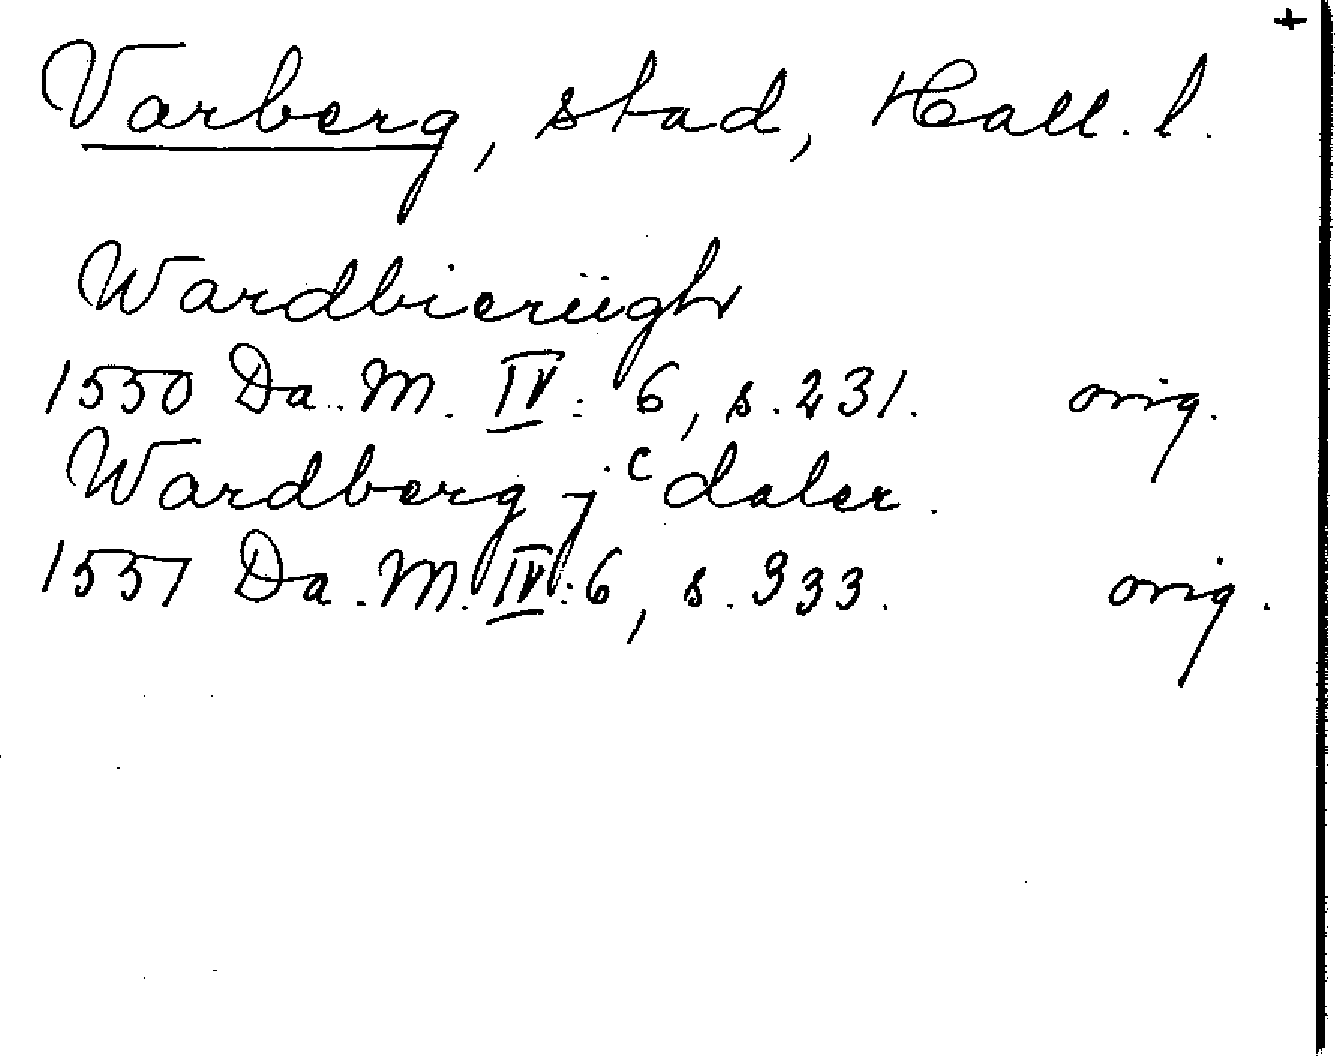 +
Varberg, stad, Hall. l.
Wardbierüghr
1550 Da. M. IV: 6, s. 231. orig.
Wardberg jᶜ daler.
1557 Da. M. IV: 6, s. 333. orig.